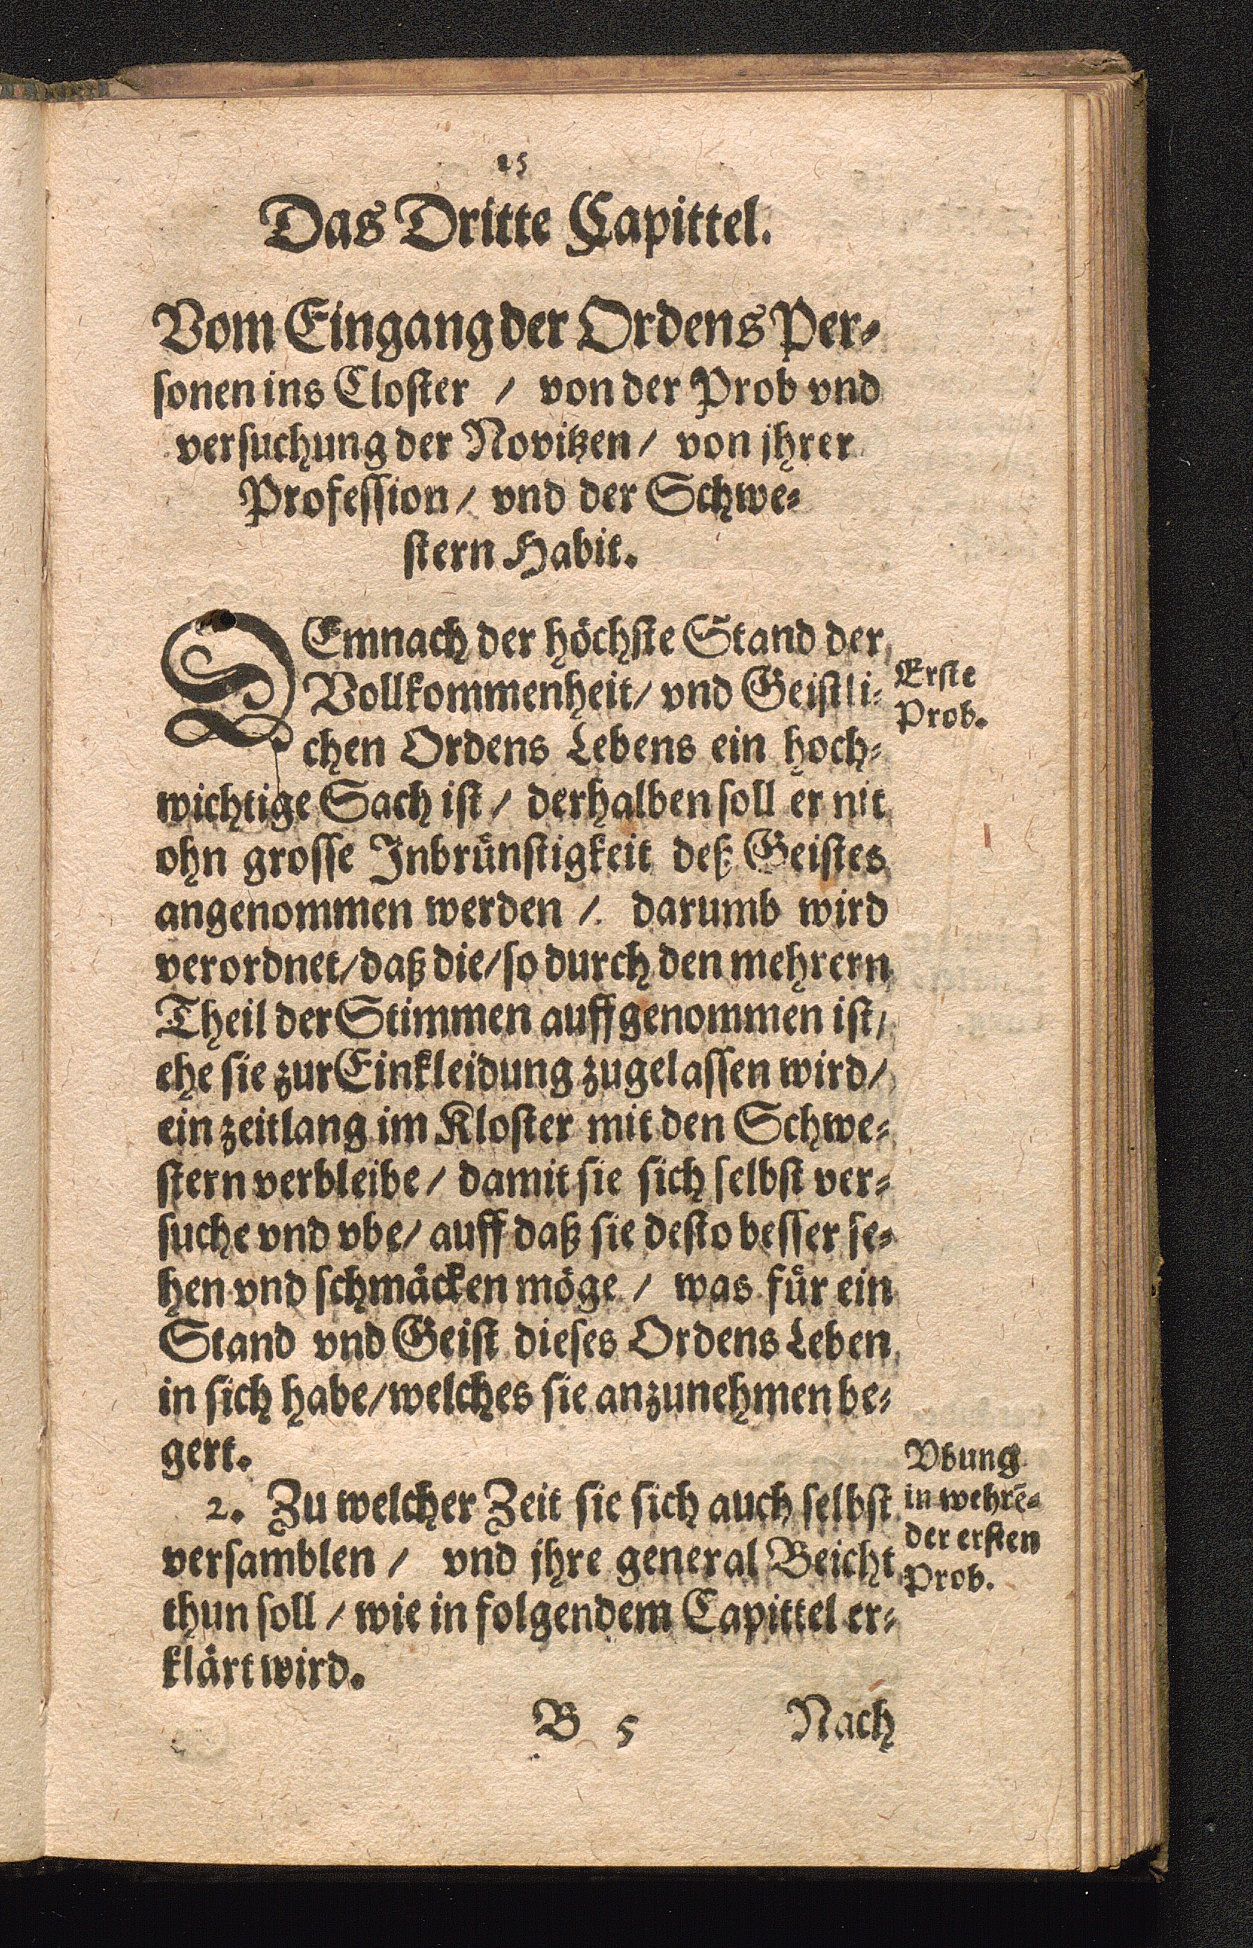 25
Das Dritte Capittel.
Vom Eingang der Ordens Per-
sonen ins Closter / von der Prob vnd
versuchung der Novitzen / von jhrer
Profession / vnd der Schwe-
stern Habit.
DEmnach der höchste Stand der
Vollkommenheit / vnd Geistli-
chen Ordens Lebens ein hoch-
wichtige Sach ist / derhalben soll er nit
ohn grosse Inbrünstigkeit deß Geistes
angenommen werden / darumb wird
verordnet / daß die / so durch den mehrern
Theil der Stimmen auffgenommen ist /
ehe sie zur Einkleidung zugelassen wird /
ein zeitlang im Kloster mit den Schwe-
stern verbleibe / damit sie sich selbst ver-
suche vnd vbe / auff daß sie desto besser se-
hen vnd schmäcken möge / was für ein
Stand vnd Geist dieses Ordens Leben
in sich habe / welches sie anzunehmen be-
gert.
2. Zu welcher Zeit sie sich auch selbst
versamblen / vnd jhre general Beicht
thun soll / wie in folgendem Capittel er-
klärt wird.
Erste
Prob.
Vbung
in wehrē-
der ersten
Prob.
B 5 Nach